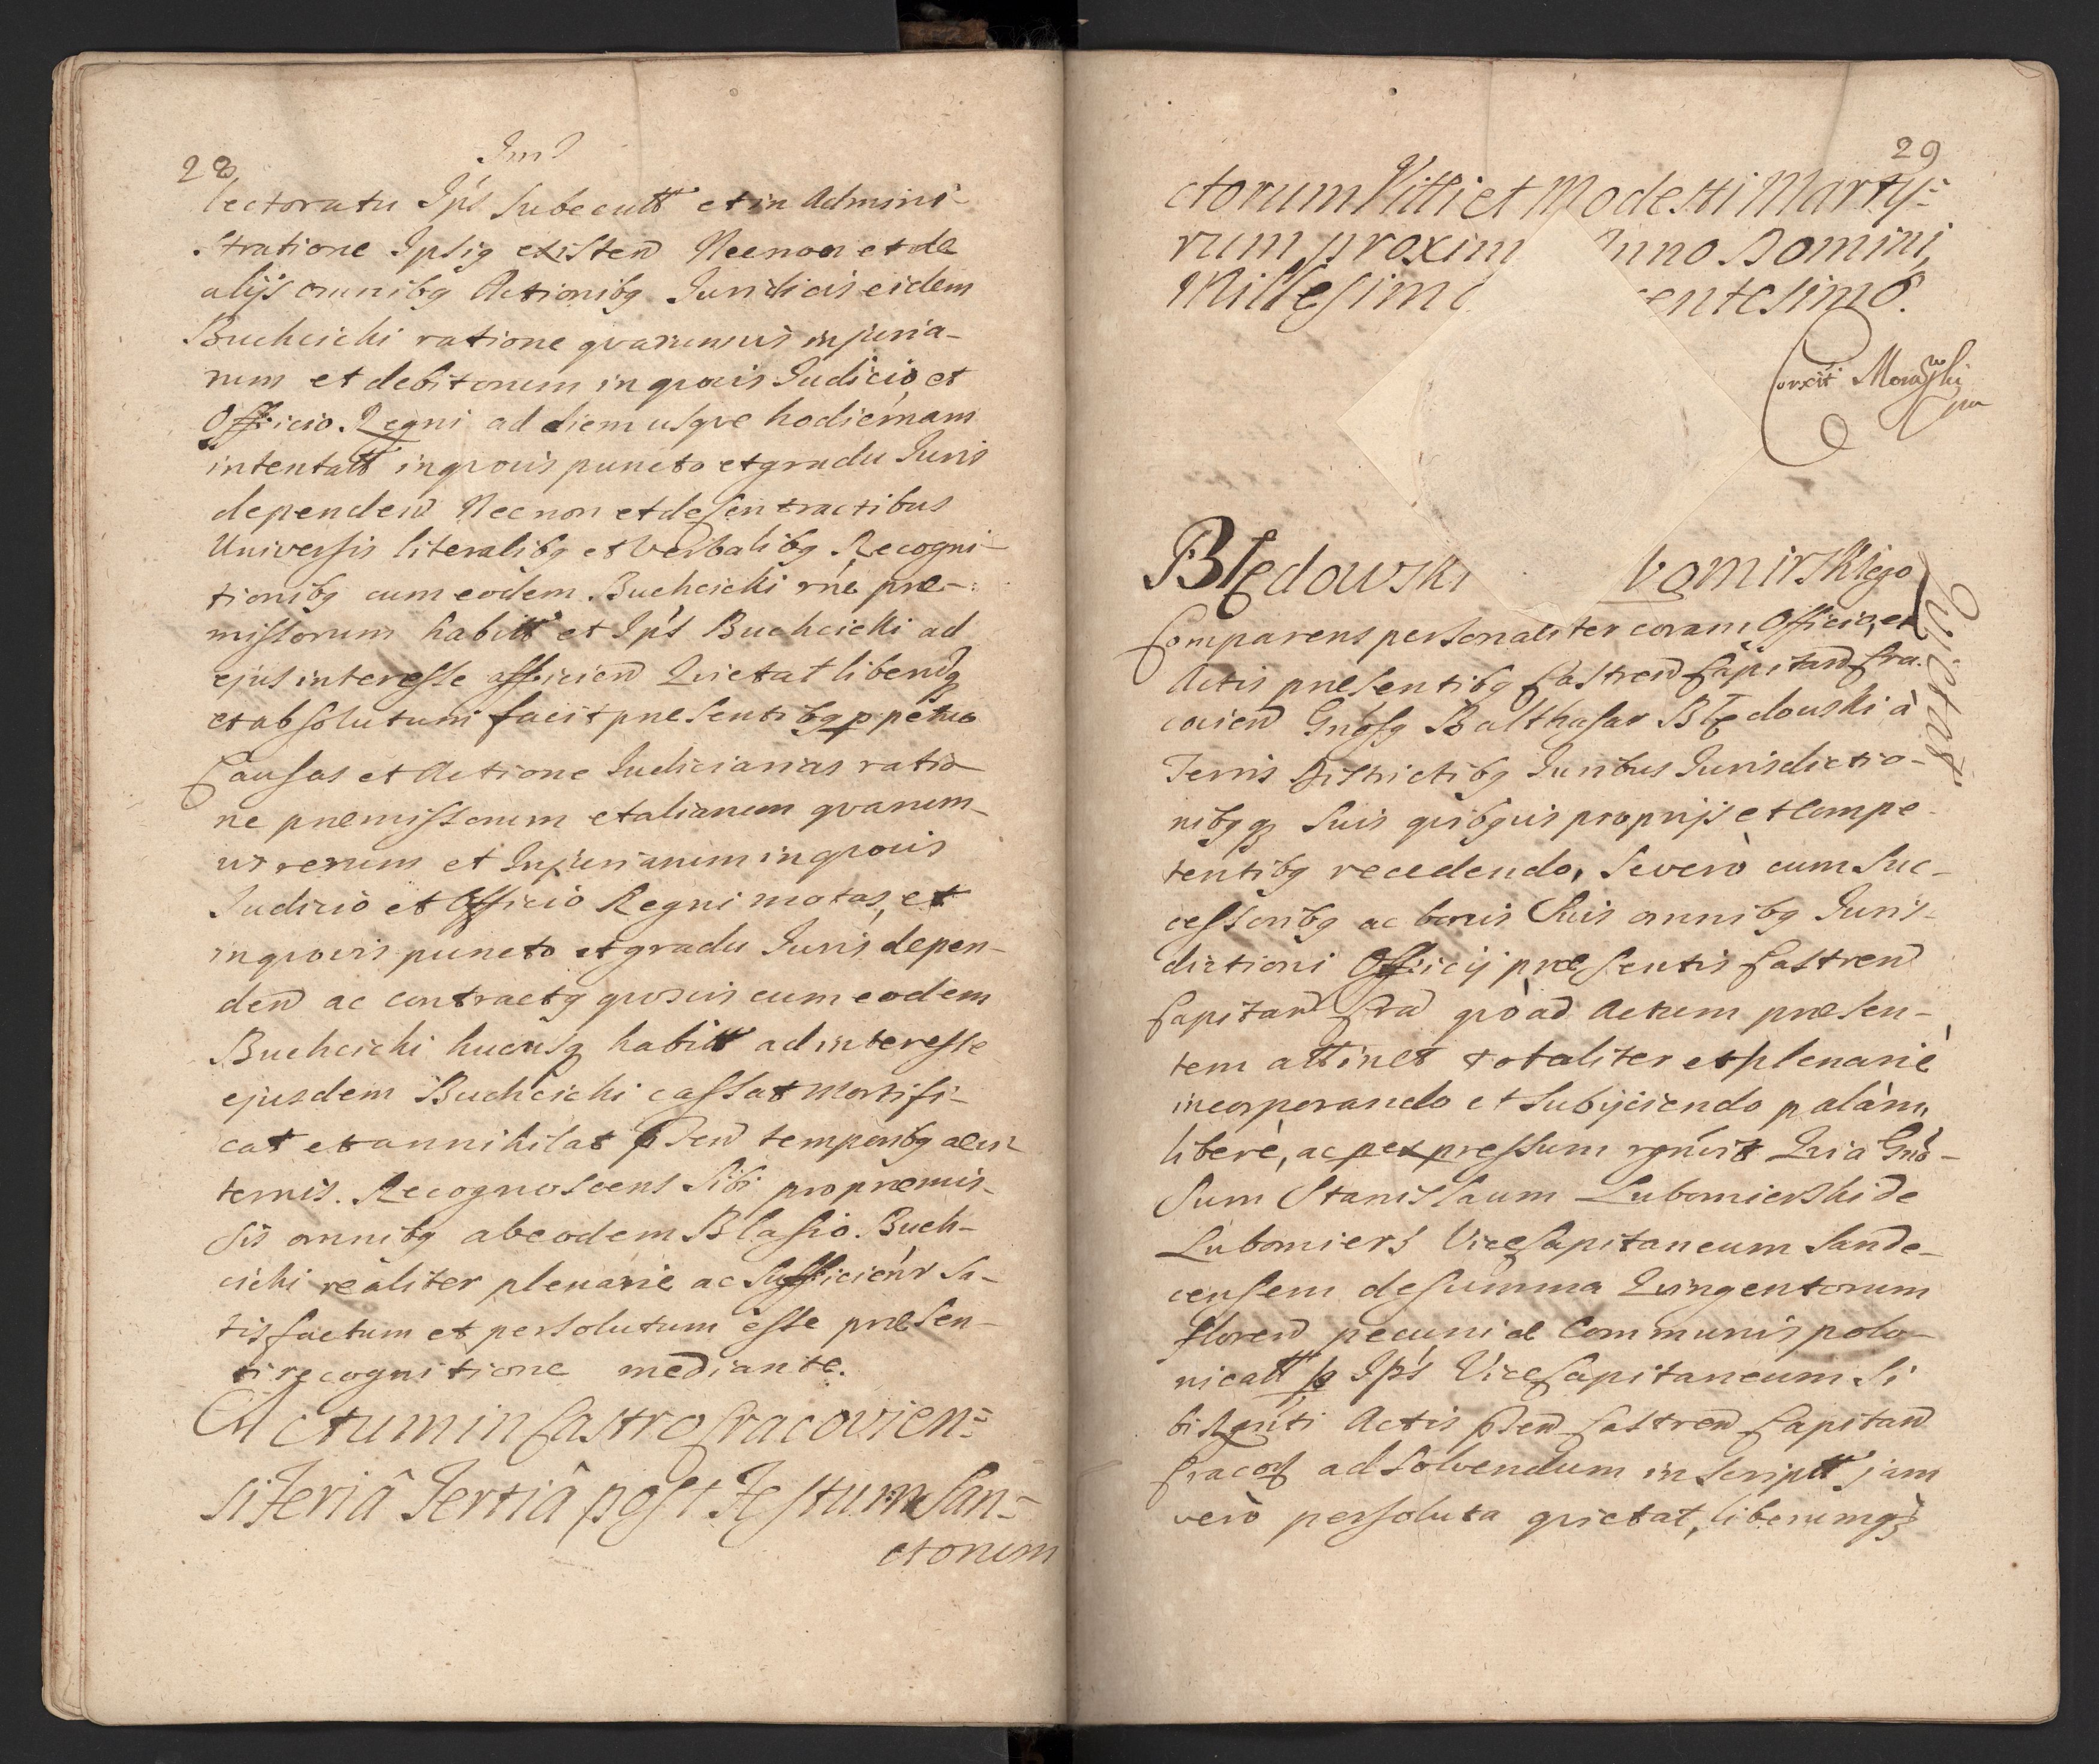 28
lectoratu Ips subecutt et in Admini-
stratione Ipsig existen Necnon et de
alijs omnibg Actionibg Juridicis eidem
Buchcicki ratione qvarumvis injuria-
rum et debitorum in qvovis Judicio et
Officio Regni ad diem usqve hodiernam
intentatt in qvovis puncto et gradu Juris
dependen Necnon et de Contractibus
Universis literalibg et Verbalibg Recogni-
tionibg cum eodem Buchcicki rne præ-
missorum habitt et Ips Buchcicki ad
ejus interesse afficien Qvietat liberumq
et absolutum facit præsentibg ppetuo
Causas et Actione Judiciarias ratio
ne præmissorum et aliarum qvarum-
vis rerum et Injuriarum in qvovis
Judicio et Officio Regni motas, et
in qvovis puncto et gradu Juris depen-
den ac contractg qvosvis cum eodem
Buchcicki hucusq habitt ad interesse
ejusdem Buchcicki cassat Mortifi-
cat et annihilat pnten temporibg ævi-
ternis. Recognoscens Sibi pro præmis-
sis omnibg ab eodem Blasio Buch-
cicki realiter plenarie ac Sufficientr Sa-
tisfactum et persolutum esse præsen-
ti recognitione mediante.
Actum in Castro Cracovien=
si Feriâ Tertiâ post Festum San=
ctorum
29
ctorum Viti et Modesti Marty=
rum proxim nno Domini
Millesimo entesimo.
Corxit Moraski
Błędowski bomirskiego
Qvietat
Comparens personaliter coram Officio, et
Actis præsentibg Castren Capitan Cra
covien Gnosg Balthasar Błędowski à
Terris Districtibg Juribus Jurisdictio-
nibgq Suis qvibgvis proprijs et Compe-
tentibg recedendo, Se verò cum Suc-
cessoribg ac bonis Suis omnibg Juris-
dictioni Officij præsentis Castren
Capitan Cra qvo ad Actum præsen-
tem attinet totaliter et plenarie
incorporando et Subijciendo palam,
liberè, ac per expressum rgnvit Qvia Gno-
sum Stanislaum Lubomierski de
Lubomierz ViceCapitaneum Sande-
censem de summa Qvingentorum
floren pecuniæ Communis polo-
nicatt p Ips ViceCapitaneum Si
bi Rgnti Actis pnten Castren Capitan
Cracov ad Solvendum inscriptt jam
verò persoluta qvietat, liberumq